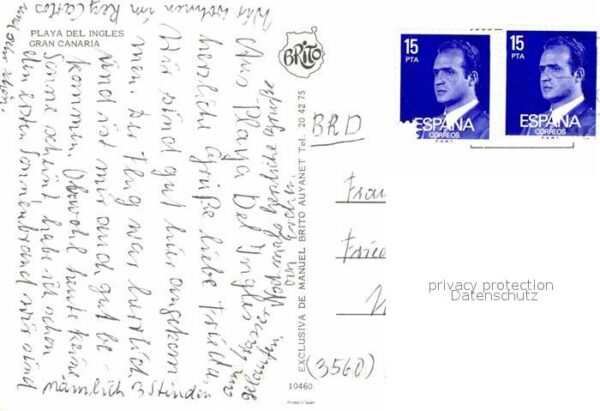 PLAYA DEL INGLES
GRAN CANARIA
BRITO
15
PTA
ESPAÑA
CORREOS
15
PTA
ESPAÑA
CORREOS
Wir wohnen im Rey Carlos
Aus Playa Del Ingles
herzliche Grüße liebe Frieda.
Wir sind gut hier angekom
men. Der Flug war herrlich
und ist mir auch gut be
kommen. Obwohl heute keine
Sonne scheint habe ich schon
den ersten Sonnenbrand wir sind
nämlich 3 Stunden
am
gelaufen
Nochmals herzliche Grüße
EXCLUSIVA DE MANUEL BRITO AUYANET Tel. 20 42 75
10460
Printed in Spain
BRD
Frau
Fried
(3560)
privacy protection
Datenschutz